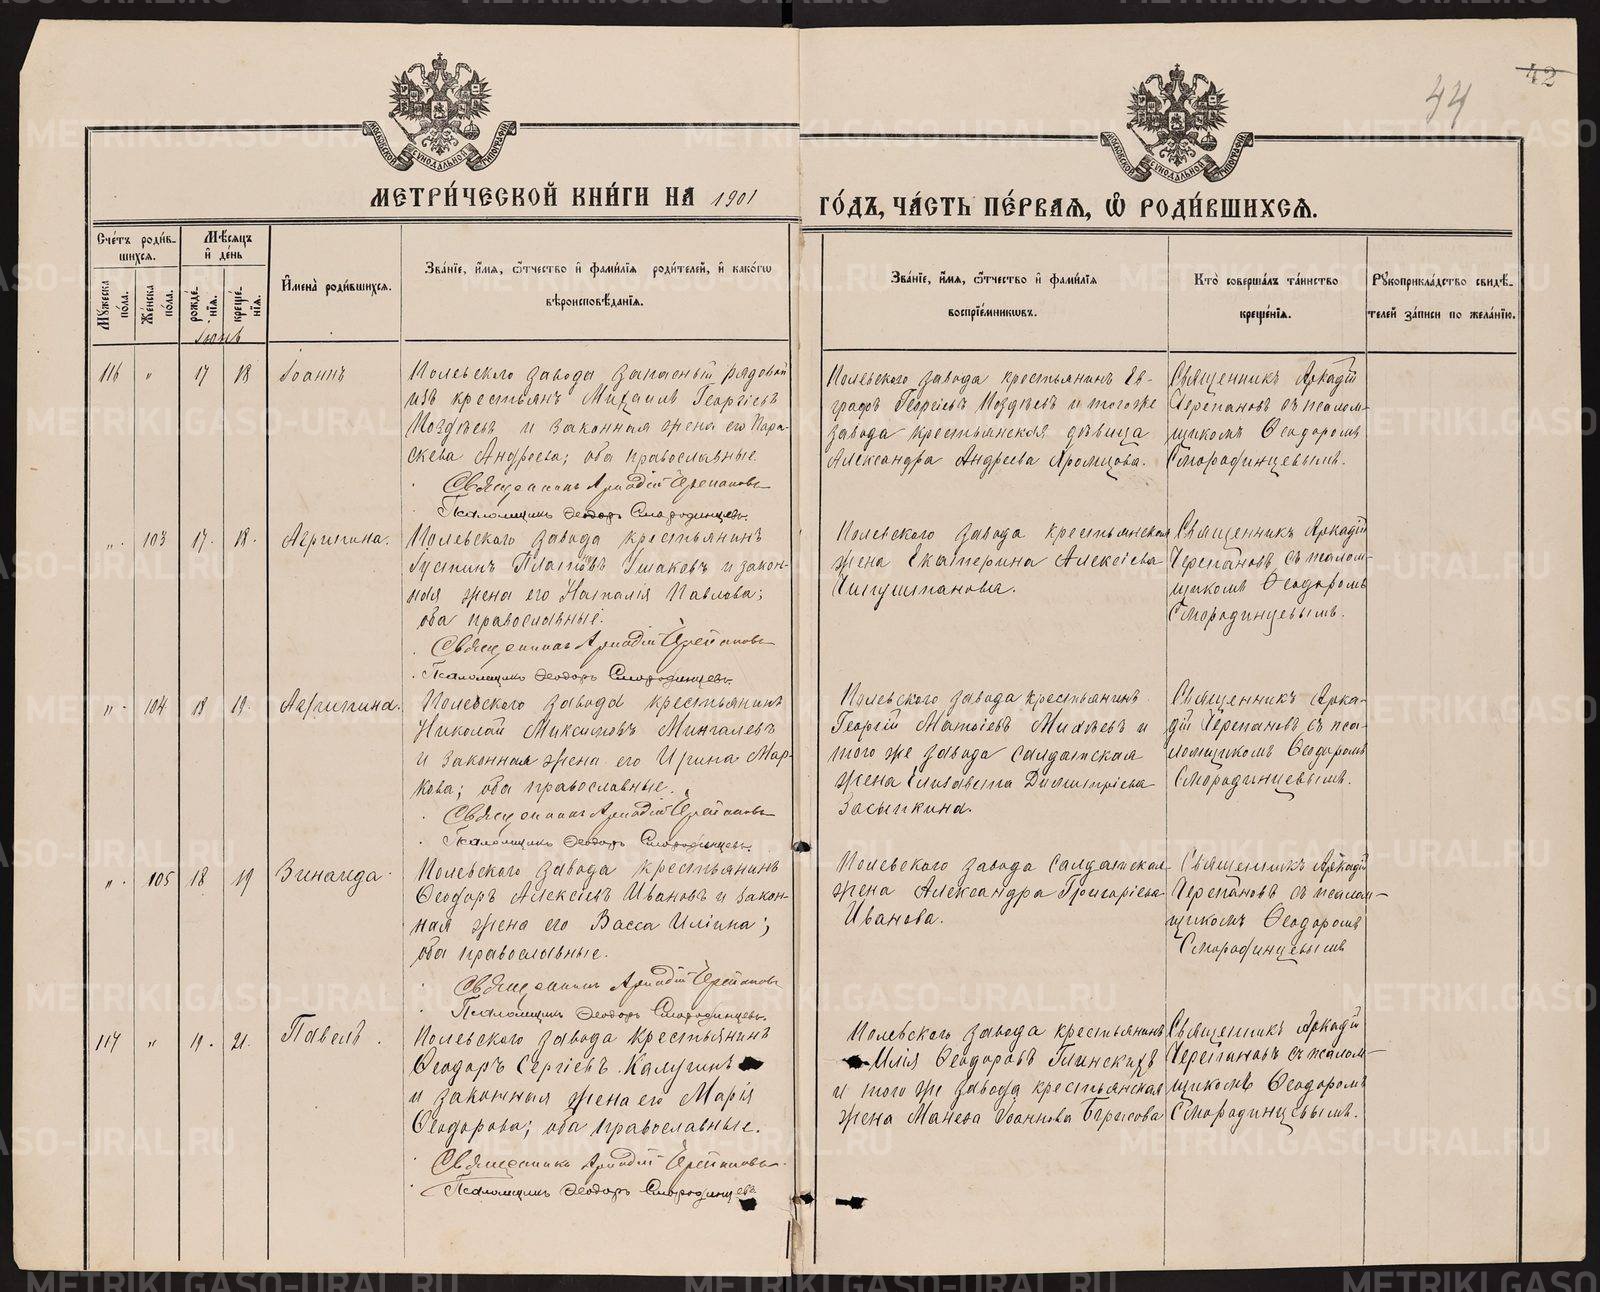 42
44
МЕТРИ́ЧЕСКОЙ КНИ́ГИ НА 1901 ГО́ДЪ, ЧА́СТЬ ПЕ́РВАЯ, Ѡ РОДИ́ВШИХСЯ.
МОСКОВСКОЙ СѴНОДАЛЬНОЙ ТИПОГРАФІИ
МОСКОВСКОЙ СѴНОДАЛЬНОЙ ТИПОГРАФІИ
Сче́тъ роди́вшихся.
Мꙋ́жеска по́ла.
Же́нска по́ла.
Мѣ́сяцъ и҆ де́нь
рожде́нїя.
креще́нїя.
И҆мена̀ роди́вшихся.
Зва́нїе, и҆́мя, ѻ҆́тчество и҆ фами́лїя роди́телей, и҆ како́гѡ
вѣроисповѣ́данїя.
Зва́нїе, и҆́мя, ѻ҆́тчество и҆ фами́лїя
воспрїе́мникѡвъ.
Кто̀ соверша́лъ та́инство
креще́нїя.
Рꙋкоприкла́дство свидѣ́-
телей за́писи по жела́нїю.
Іюнь
116 " 17 18 Іоаннъ
Полевского завода запасный рядовой
изъ крестьянъ Михаилъ Георгіевъ
Поздѣевъ и законная жена его Пара-
скева Андреева; оба православные
Священникъ Аркадій Черепановъ
Псаломщикъ Ѳеодоръ Смородинцевъ.
Полевского завода крестьянинъ Ев-
графъ Георгіевъ Поздѣевъ и того же
завода крестьянская дѣвица
Александра Андреева Хромцова.
Священникъ Аркадій
Черепановъ съ псалом-
щикомъ Ѳеодоромъ
Смородинцевымъ.
" 103 17. 18. Агрипина.
Полевского завода крестьянинъ
Іустинъ Платоновъ Ушаковъ и закон-
ная жена его Наталія Павлова;
оба православные.
Священникъ Аркадій Черепановъ
Псаломщикъ Ѳеодоръ Смородинцевъ.
Полевского завода крестьянская
жена Екатерина Алексіева
Чипуштанова.
Священникъ Аркадій
Черепановъ съ псалом-
щикомъ Ѳеодоромъ
Смородинцевымъ.
" 104 18 19. Агриппина.
Полевского завода крестьянинъ
Николай Максимовъ Мингалевъ
и законная жена его Ирина Мар-
кова; оба православные.
Священникъ Аркадій Черепановъ
Псаломщикъ Ѳеодоръ Смородинцевъ.
Полевского завода крестьянинъ
Георгій Матѳіевъ Михѣевъ и
того же завода салдатская
жена Елизавета Димитріева
Засыпкина.
Священникъ Арка-
дій Черепановъ съ пса-
ломщикомъ Ѳеодоромъ
Смородинцевымъ.
" 105 18 19 Зинаида.
Полевского завода крестьянинъ
Ѳеодоръ Алексіевъ Ивановъ и закон-
ная жена его Васса Иліина;
оба православные.
Священникъ Аркадій Черепановъ
Псаломщикъ Ѳеодоръ Смородинцевъ.
Полевского завода салдатская
жена Александра Григоріева
Иванова.
Священникъ Аркадій
Черепановъ съ псалом-
щикомъ Ѳеодоромъ
Смородинцевымъ
117 " 19. 21. Павелъ.
Полевского завода крестьянинъ
Ѳеодоръ Сергіевъ Калугинъ
и законная жена его Марія
Ѳеодорова; оба православные.
Священникъ Аркадій Черепановъ.
Псаломщикъ Ѳеодоръ Смородинцевъ.
Полевского завода крестьянинъ
Илія Ѳеодоровъ Глинскихъ
и того же завода крестьянская
жена Іоаннова Борисова
Священникъ Аркадій
Черепановъ съ псалом-
щикомъ Ѳеодоромъ
Смородинцевымъ.
METRIKI.GASO-URAL.RU